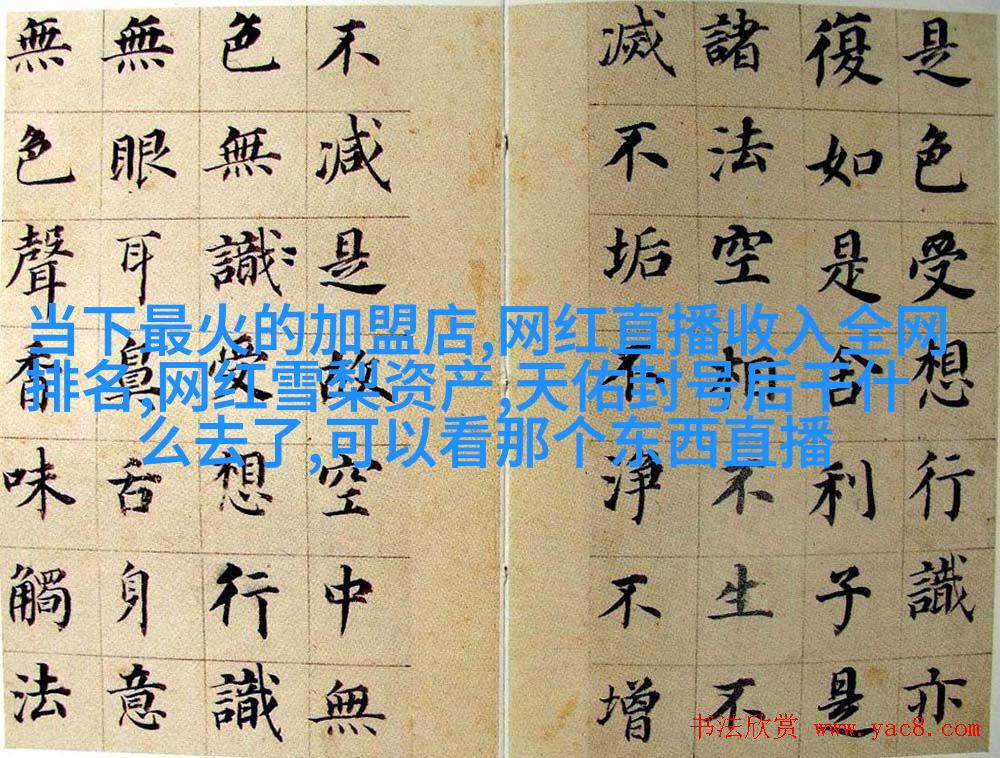 是色受想行識亦
復如是舍利子是
諸法空相不生不
滅不垢不淨不增
不減是故空中無
色無識受想行識
無眼耳鼻舌身意
無色聲香味觸法
当下最火的加盟店,网红直播收入全网
排名,网红雪梨资产,天佑封号后干什
么去了,可以看那个东西直播
书法欣赏 www.yac8.com